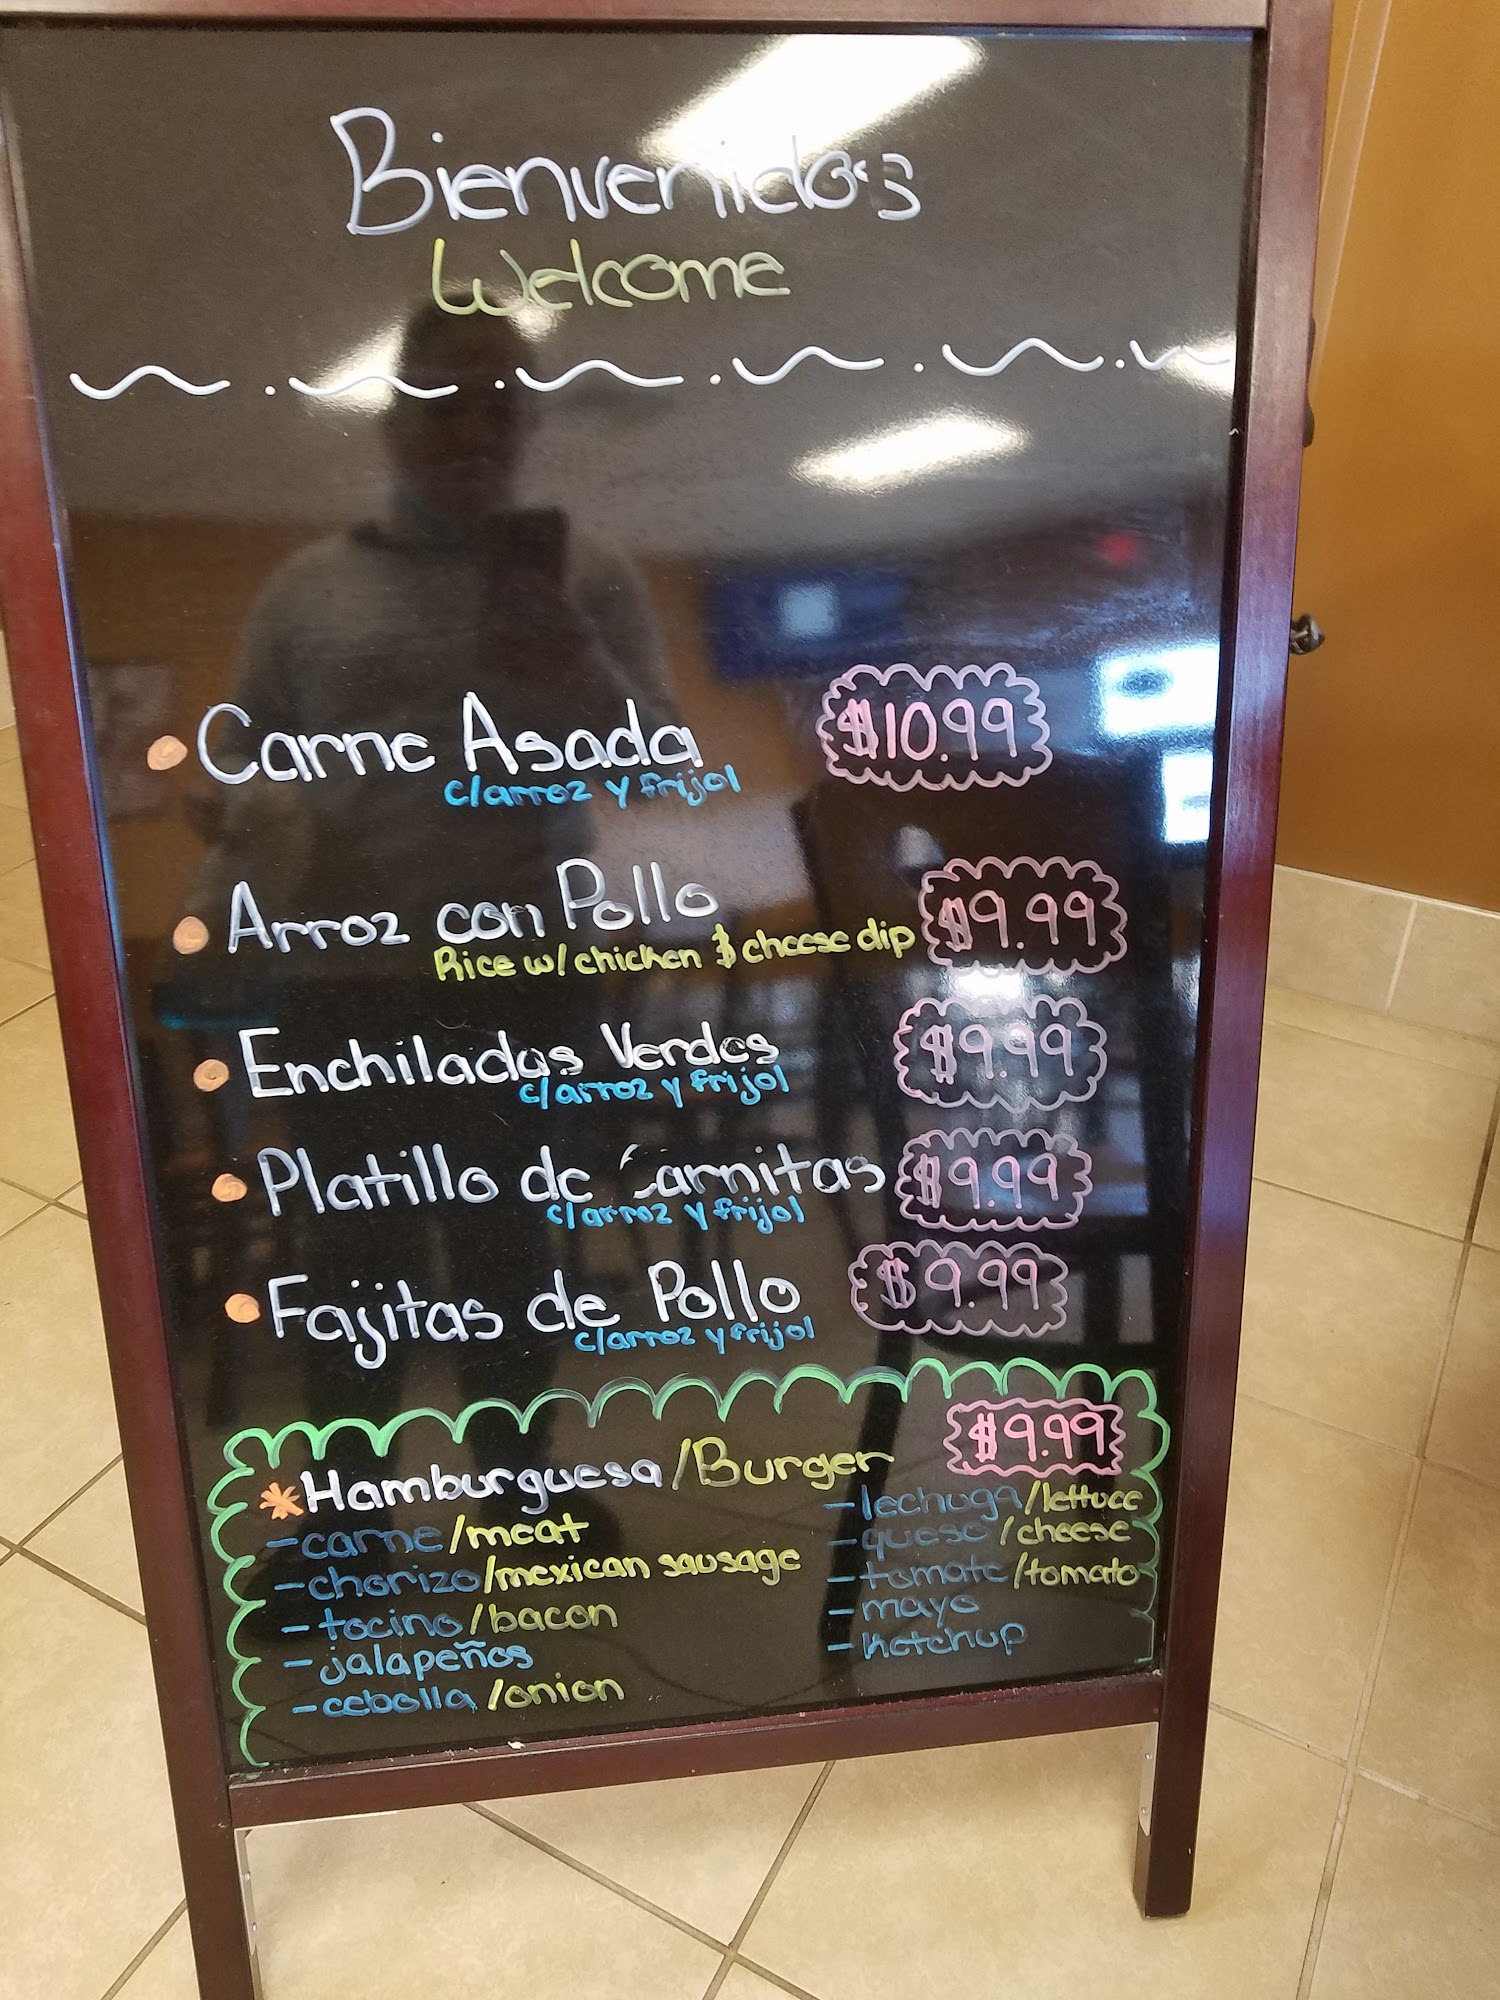 Bienvenidos
Welcome
Carne Asada $10.99
c/arroz y frijol
Arroz con Pollo $9.99
Rice w/ chicken $ cheese dip
Enchiladas Verdes $9.99
c/arroz y frijol
Platillo de Carnitas $9.99
c/arroz y frijol
Fajitas de Pollo $9.99
c/arroz y frijol
*Hamburguesa/Burger $9.99
-carne/meat
-chorizo/mexican sausage
-tocino/bacon
-jalapeños
-cebolla/onion
-lechuga/lettuce
-queso/cheese
-tomate/tomato
-mayo
-ketchup